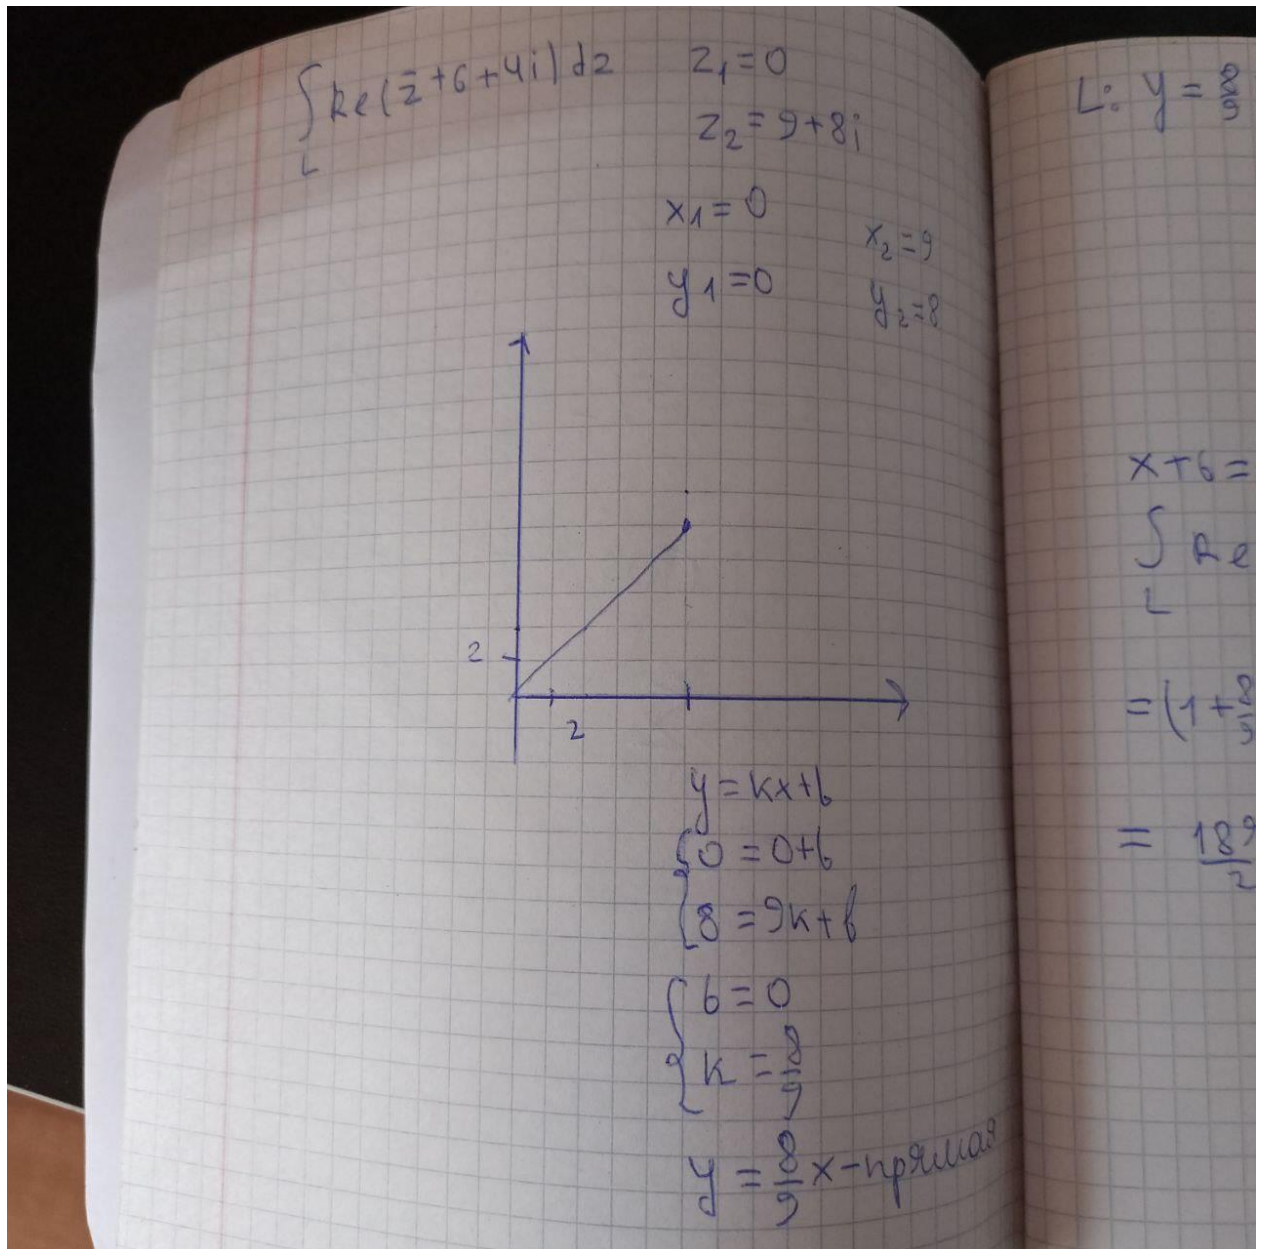 ∫ Re(z̄+6+4i)dz z₁=0
L
z₂=9+8i
x₁=0
x₂=9
y₁=0
y₂=8
2
2
y=kx+b
0=0+b
8=9k+b
b=0
k=8/9
y=8/9x-прямая
L: y=8/9
x+6=
∫ Re
L
=(1+8/9
= 189/2